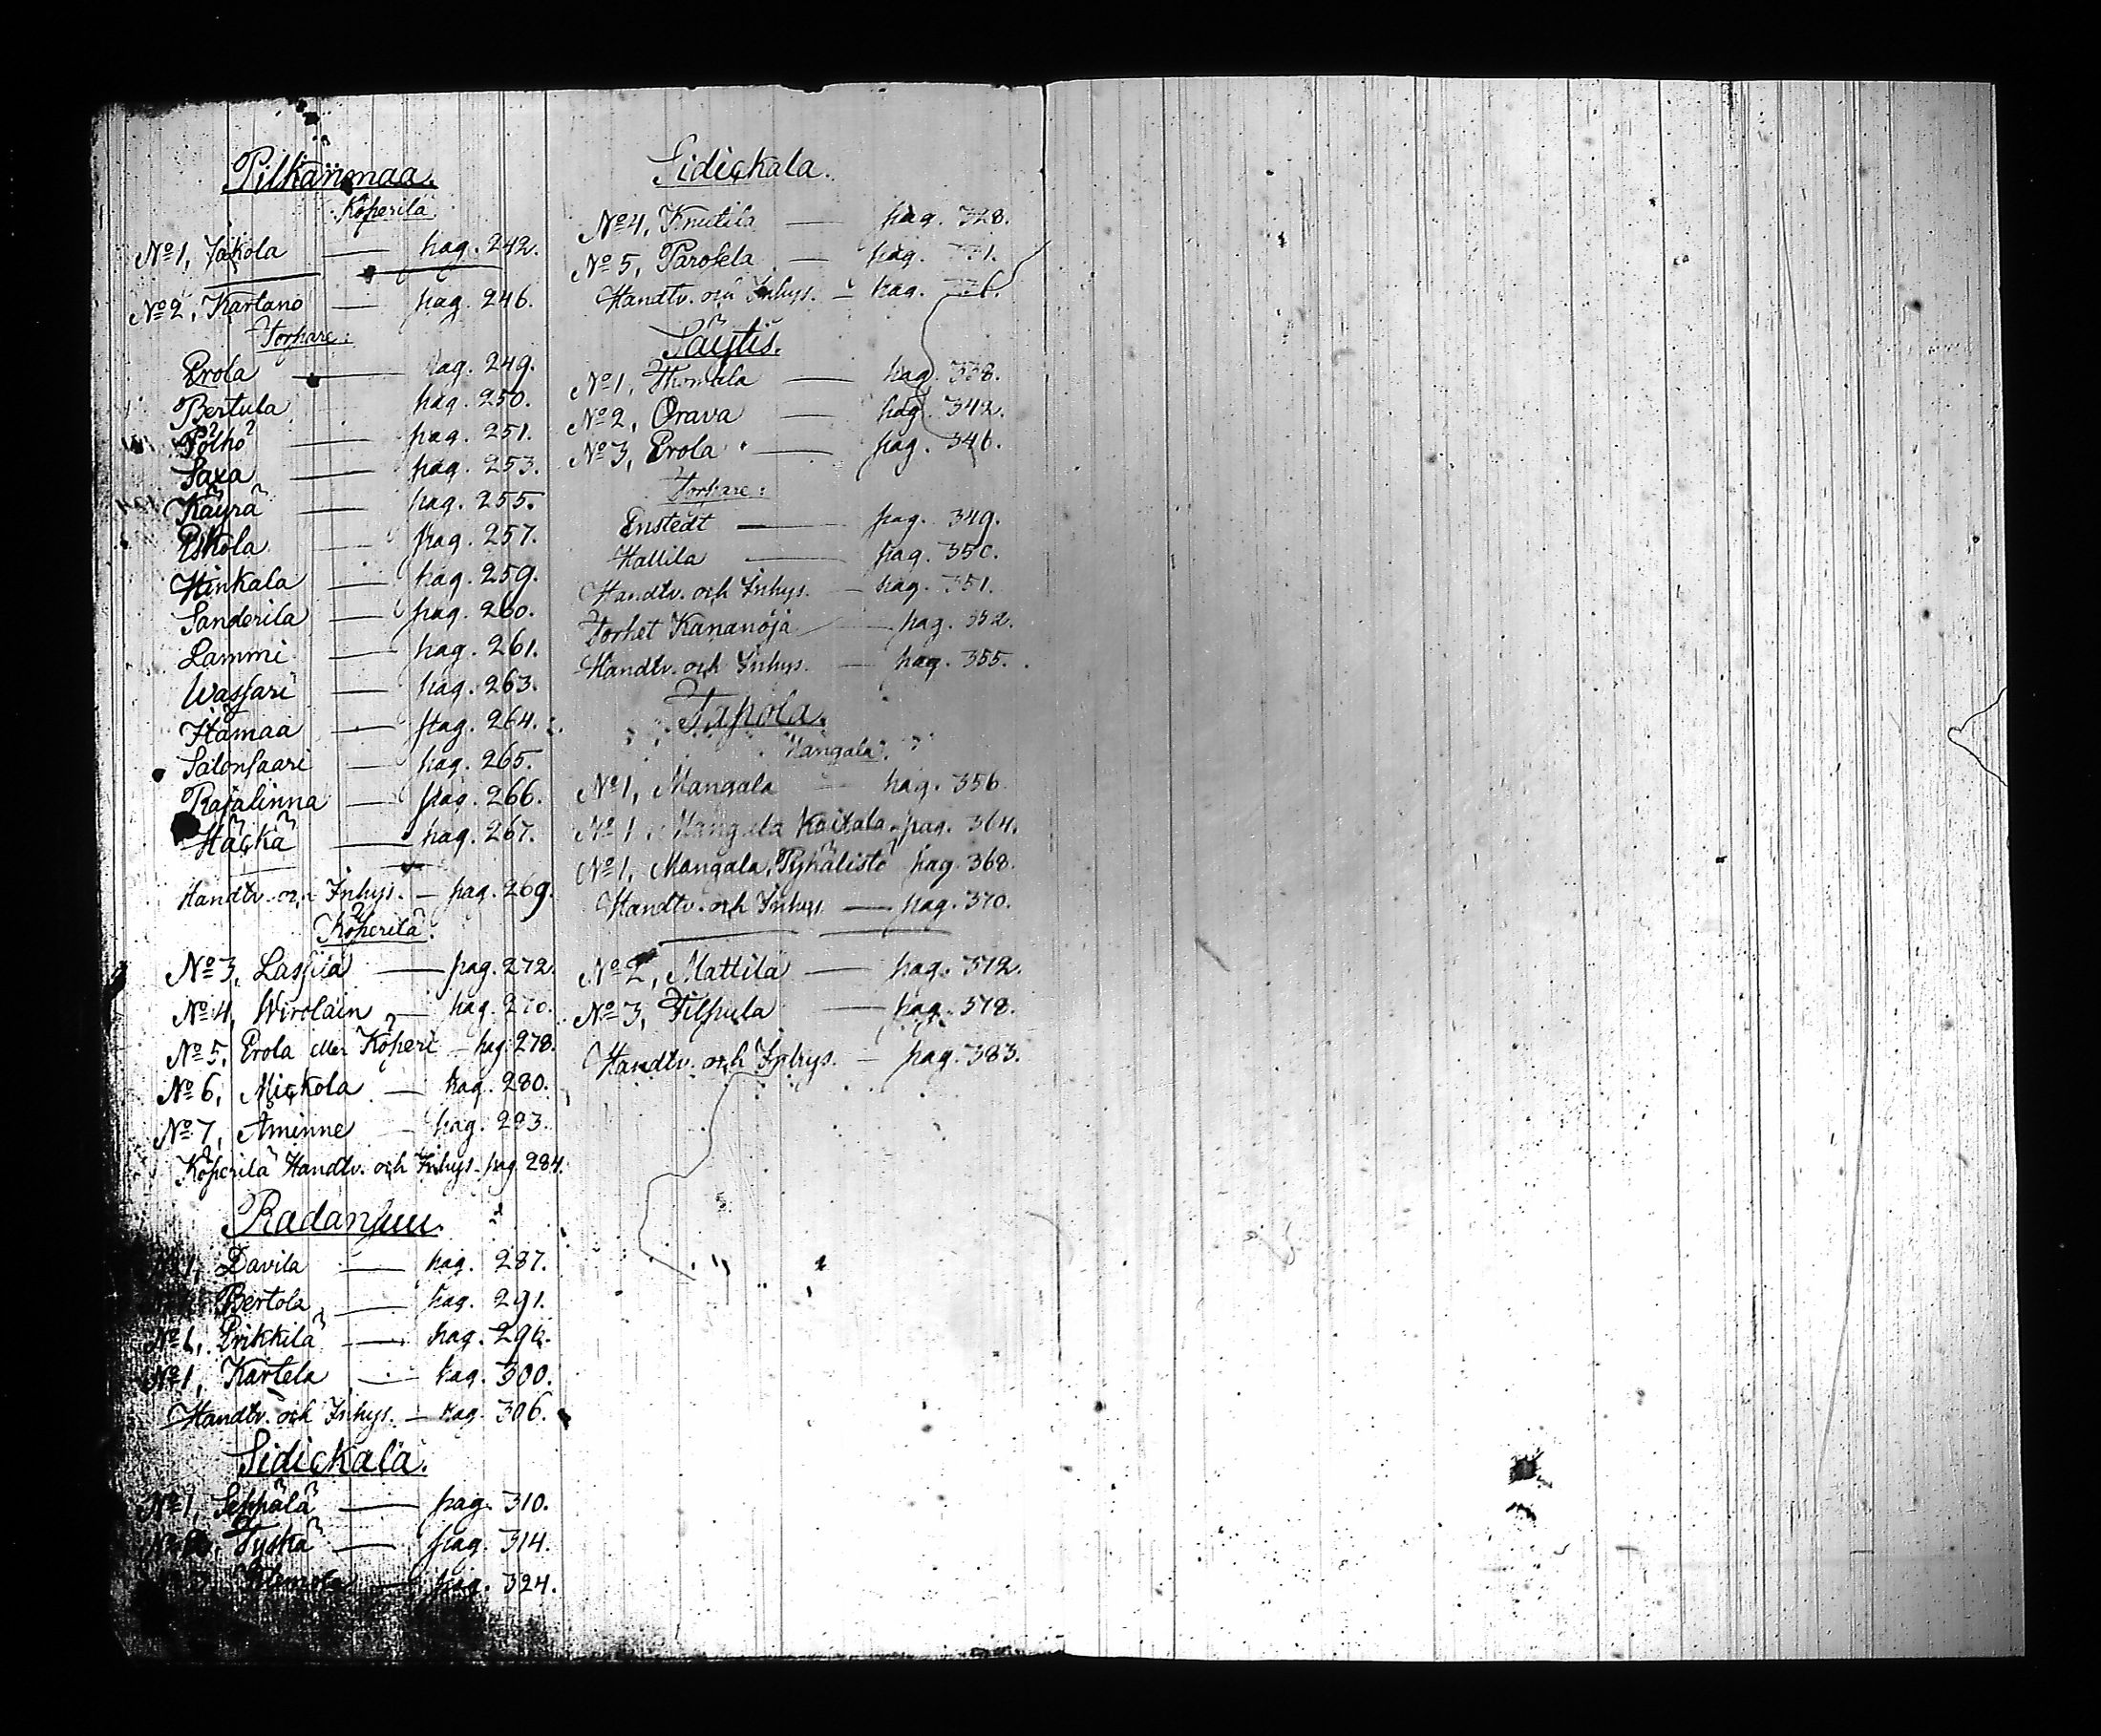 Pilkänmaa.
Köperilä.
No 1, Jakola — pag. 242.
No 2, Kartano — pag. 246.
Torpare:
Erola — pag. 249.
Bertula pag. 250.
Pölhö — pag. 251.
Saxa — pag. 253.
Käyrä — pag. 255.
Eskola — pag. 257.
Hinkala — pag. 259.
Sanderila — pag. 260.
Lammi — pag. 261.
Wassari — pag. 263.
Itämaa — pag. 264.
Salonsaari — pag. 265.
Rajalinna — pag. 266.
Häckä — pag. 267.
Handtv. och Inhys. — pag. 269.
Köperilä.
No 3, Lassila — pag. 272.
No 4, Wirolain — pag.
No 5, Erola eller Köperi — pag. 278.
No 6, Mickola — pag. 280.
No 7, Aminne — pag. 283.
Köperilä Handtv. och Inhys. pag. 284.
Radansuu.
No 1, Davila — pag. 287.
Bertola — pag. 291.
No 1, Erikkilä — pag. 296.
No 1, Kartela — pag. 300.
Handtv. och Inhys. — pag. 306.
Sidickala.
No 1, Seppälä — pag. 310.
Tyskä — pag. 314.
— pag. 324.
Sidickala.
No 4, Knutila — pag. 328.
No 5, Parosela — pag.
Handtv. och Inhys. — pag.
Säytis.
No 1, — pag. 338.
No 2, Orava — pag. 342.
No 3, Erola — pag. 346.
Torpare:
Enstedt — pag. 349.
Hallila — pag. 350.
Handtv. och Inhys. — pag. 351.
Torpet Kananoja — pag. 352.
Handtv. och Inhys. — pag. 355.
Tapola.
Mangala.
No 1, Mangala — pag. 356.
No 1, Mangala Kaitala pag. 364.
No 1, Mangala, Pyhälistö pag. 368.
Handtv. och Inhys — pag. 370.
No 2, Mattila — pag. 372.
No 3, Filpula — pag. 378.
Handtv. och Inhys. — pag. 383.